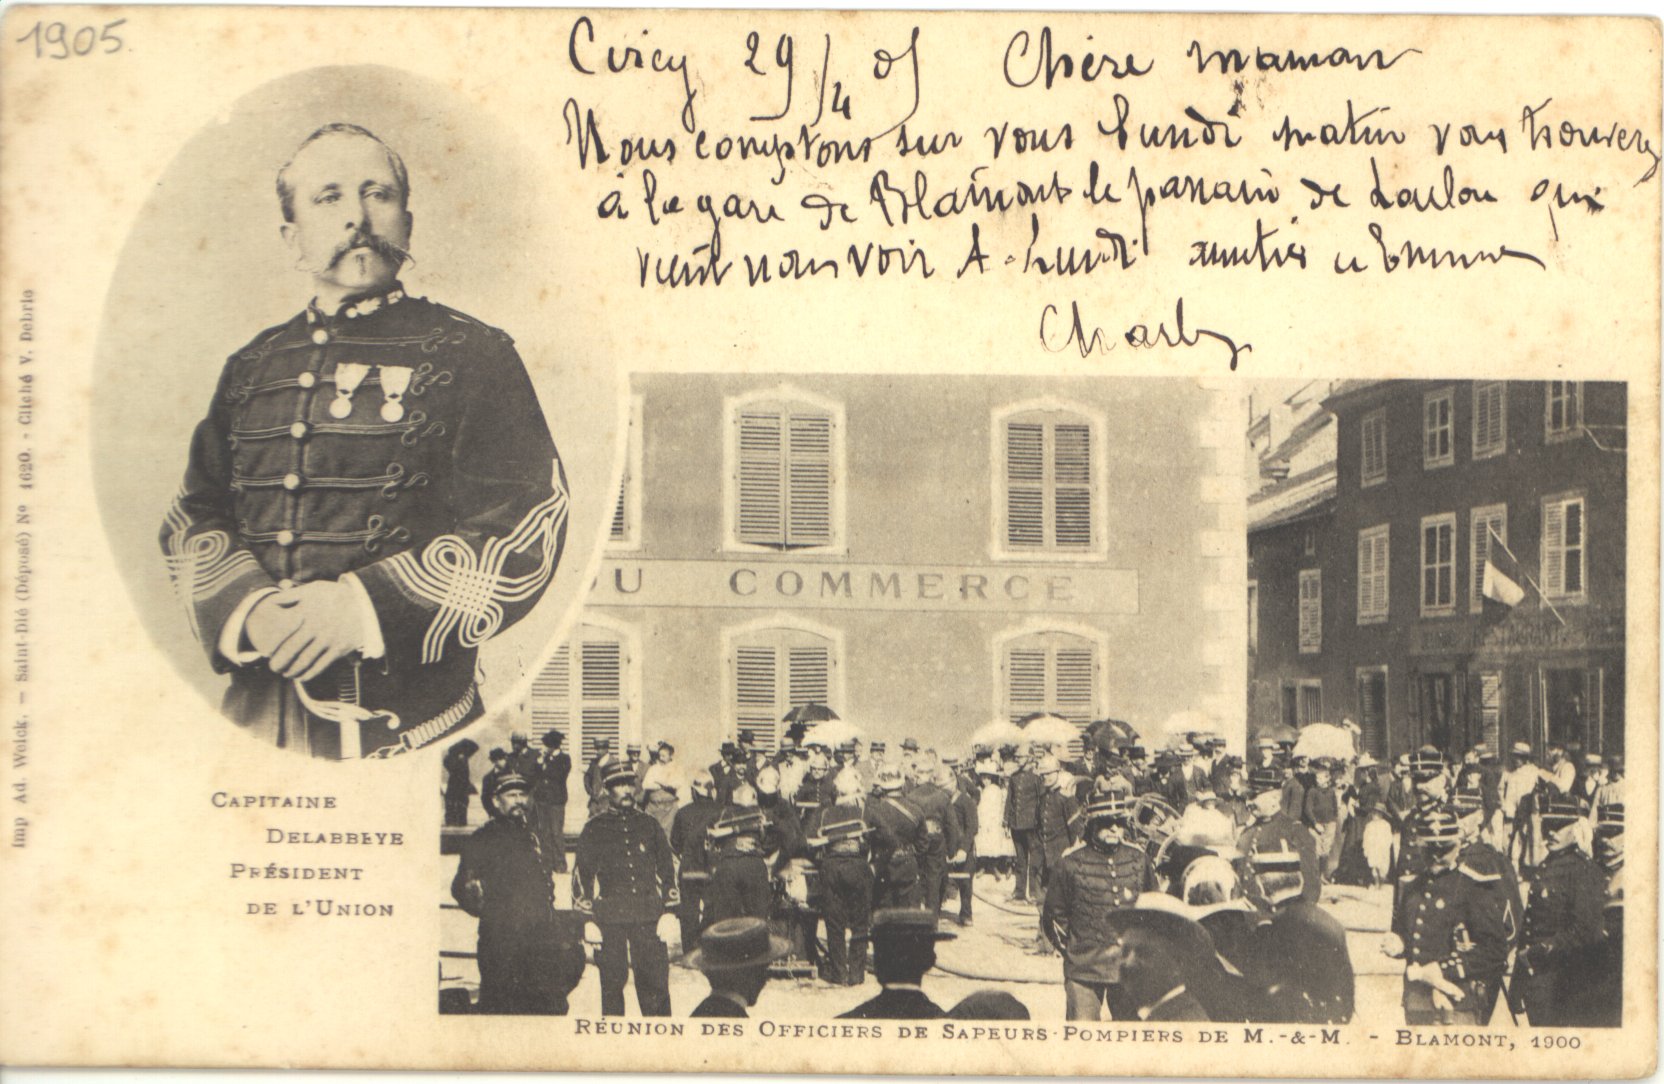 1905
Cirey 29/4 05 Chère maman
Nous comptons sur vous lundi matin vous trouverez
à la gare de Blamont le parrain de Loulou qui
vient nous voir A lundi amitiés
Charly
DU COMMERCE
RESTAURANT
CAPITAINE
DELABBEYE
PRÉSIDENT
DE L'UNION
RÉUNION DES OFFICIERS DE SAPEURS-POMPIERS DE M.-&-M. - BLAMONT, 1900
Imp Ad. Weick. — Saint-Dié (Déposé) No 1620. - Cliché V. Debrie